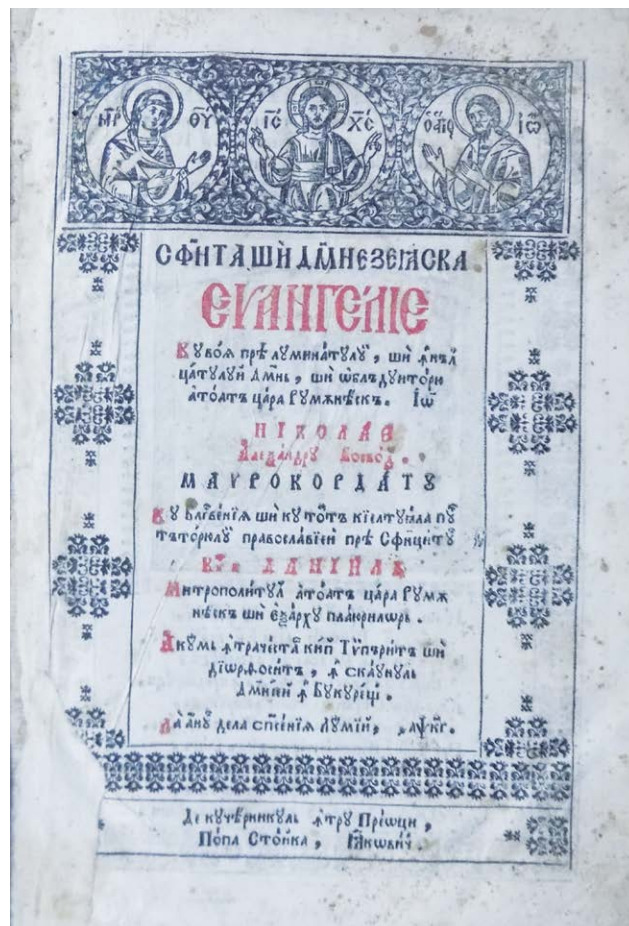 МР ѲУ ІС ХС ОАГІО ІѠ
СФИТА ШИ ДМНЕЗЕꙖСКА
ЕѴАНГЕЛІЕ
Кꙋ воѧ прѣ лꙋминатꙋлꙋй, ши ꙟнъл
цатꙋлꙋй Дмнь, ши ѡблъдꙋиторю
атоатъ цара Рꙋмѫнѣскъ. Іѡ
НІКОЛАЕ
Алеѯандрꙋ Воевод.
МАѴРОКОРДАТꙊ
Кꙋ блⷭ҇вениѧ ши кꙋ тотъ кіелтꙋѧла пꙋ
тъторюлꙋ православіей прѣ Сфинцитꙋ
Кѵр ДАНІИЛЬ
Митрополитꙋл атоатъ цара Рꙋмѫ
нѣскъ ши еѯархꙋ плаюрилѡрь.
Акꙋмь ꙟтрачѣста кип Тѵпърит ши
дїѡрѳосит, ꙟ скаꙋнꙋль
Дмнїей ꙟ Бꙋкꙋрещи.
Ла анꙋ дела спсенїѧ Лꙋмїй, ҂аѱкг.
Де кꙋчѣрникꙋль ꙟтрꙋ Преѡци,
Попа Стойка, Ꙗковичи.